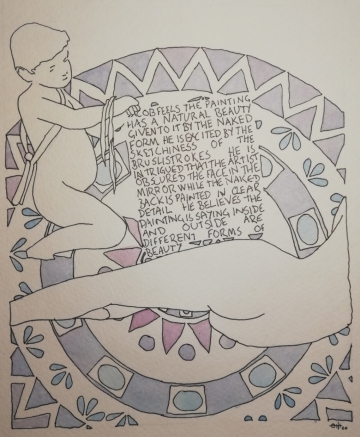 JACOB FEELS THE PAINTING
HAS A NATURAL BEAUTY
GIVEN TO IT BY THE NAKED
FORM. HE IS EXCITED BY THE
SKETCHINESS OF THE
BRUSHSTROKES. HE IS
INTRIGUED THAT THE ARTIST
OBSCURED THE FACE IN THE
MIRROR WHILE THE NAKED
BACK IS PAINTED IN CLEAR
DETAIL. HE BELIEVES THE
PAINTING IS SAYING INSIDE
AND OUTSIDE ARE
DIFFERENT FORMS OF
BEAUTY